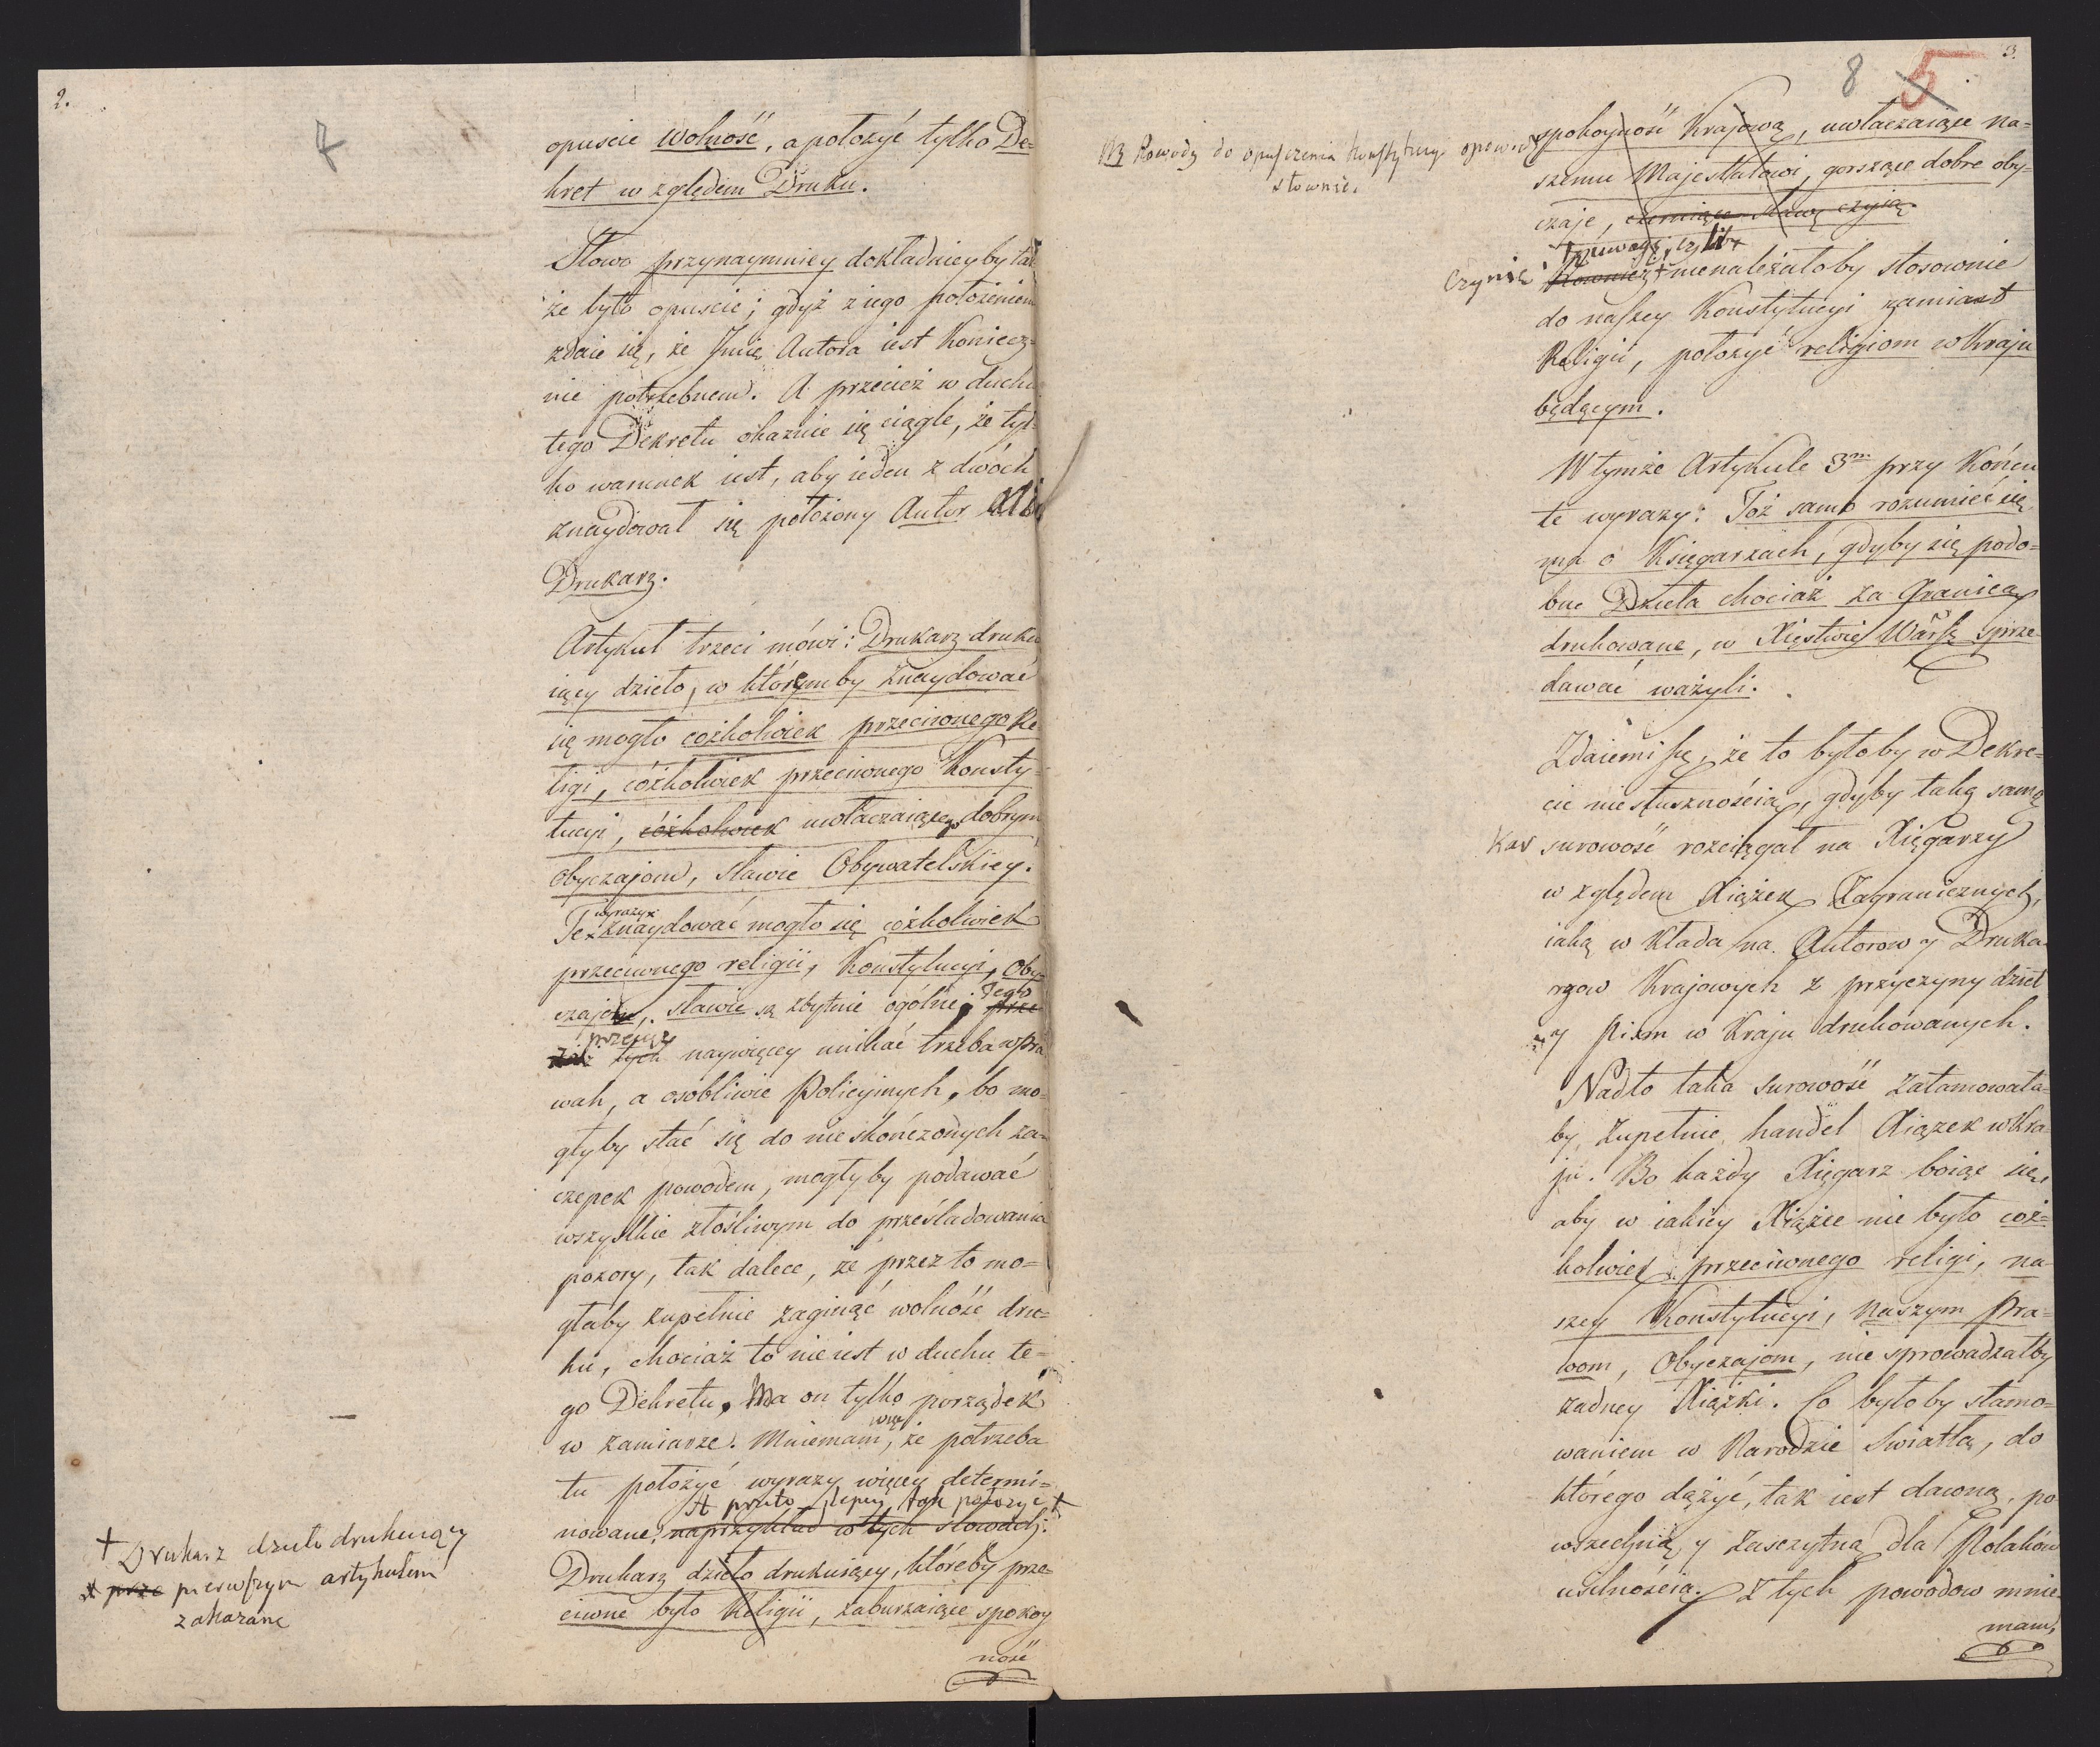 2.
7
opuście Wolność, a położyć tylko De-
kret względem Druku.
Słowo przynaymniey dokładniey by tak
że było opuście; gdyż z iego położeniem
zdaie się, że Jmię Autora iest Koniecz-
nie potrzebnem. A przecież w duchu
tego Dekretu okazuie się ciągle, że tyl-
ko warunek iest, aby ieden z dwóch
znaydował się położony Autor albo
Drukarz.
Artykuł trzeci mówi: Drukarz druku
iący dzieło, w którymby znaydować
się mogło cóżkolwiek przeciwnego Re
ligi, cóżkolwiek przeciwnego Konsty-
tucyi, cóżkolwiek uwłaczaiącego dobrym
obyczajom, sławie Obywatelskiey.
wyrazy
Te znaydować mogło się cóżkolwiek
przeciwnego religii, Konstytucyi, oby-
czajom, sławie są zbytnie ogólne; prze
przeięć
tych naywięcey unikać trzeba w Pra
wah, a osobliwie Policyinych, bo mo-
głyby stać się do nieskończonych za-
czepek powodem, mogłyby podawać
wszystkie złośliwym do prześladowania
pozory, tak dalece, że przez to mo-
głaby zupełnie zaginąć wolność dru-
ku, chociaż to nie iest w duchu te-
go Dekretu. Ma on tylko porządek
w zamiarze. Mniemam więc, że potrzeba
tu położyć wyrazy więcey determi-
A przeto lepiey tak położyć +
nowane, naprzykład w tych słowach:
Drukarz dzieło drukuiący, któreby prze-
ciwne było Religii, zaburzaiące spokoy
ność
+ Drukarz dzieło drukuiący
prze pierwszym artykułem
zakazane
8 5
3.
NB Powody do opuszczenia Konstytucyi
słownie.
spokoyność Krajową, uwłaczaiące na-
szemu Majestatowi, gorszące dobre oby-
czaje, czerniące sławę czyią.
Czynię uwagę, czyliby
Rownież nienależałoby stosownie
do naszey Konstytucyi zamiast
Religii, położyć religiom w Kraju
będącym.
W tymże Artykule 3m przy Końcu
te wyrazy: Toż samo rozumieć się
ma o Księgarzach, gdyby się podo-
bne Dzieła chociaż za Granicą
drukowane, w Xięstwie Warsz sprze-
dawać ważyli.
Zdaiemi się, że to byłoby w Dekre-
cie niesłusznością, gdyby taką samą
kar surowość rozciągał na Xięgarzy
względem Xiążek Zagranicznych,
iaką wkłada na Autorow y Druka-
rzow Krajowych z przyczyny dzieł
y Pism w Kraju drukowanych.
Nadto taka surowość zatamowała-
by zupełnie handel Xiążek w Kra-
ju. Bo każdy Xięgarz boiąc się,
aby w iakiey Xiążce nie było coż-
kolwiek przeciwnego religi, na
szey Konstytucyi, naszym Pra-
wom, Obyczajom, nie sprowadzałby
żadney Xiążki. Co byłoby stamo-
waniem w Narodzie światła, do
którego dążyć, tak iest dawną, po
wszechną, y zaszczytną dla Polaków
usilnością. Z tych powodow mnie-
mam,